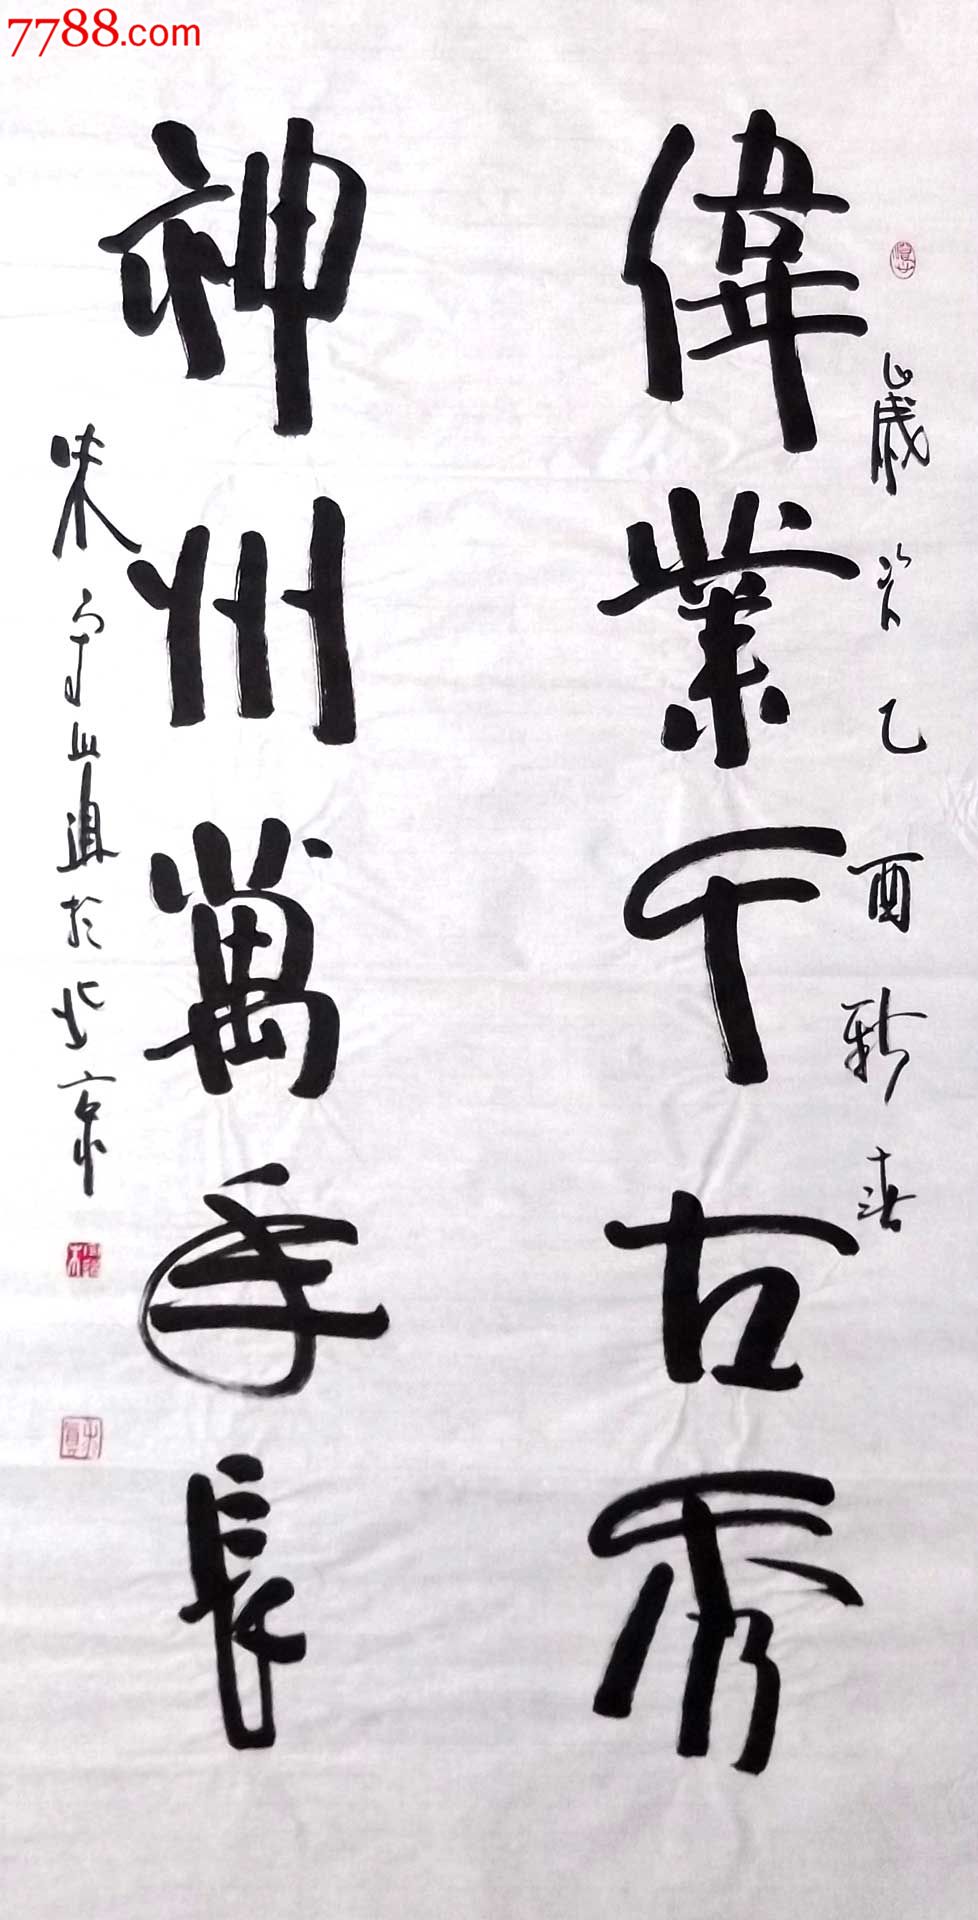 7788.com
偉業千古秀
歲次乙酉新春
神州萬年長
於北京